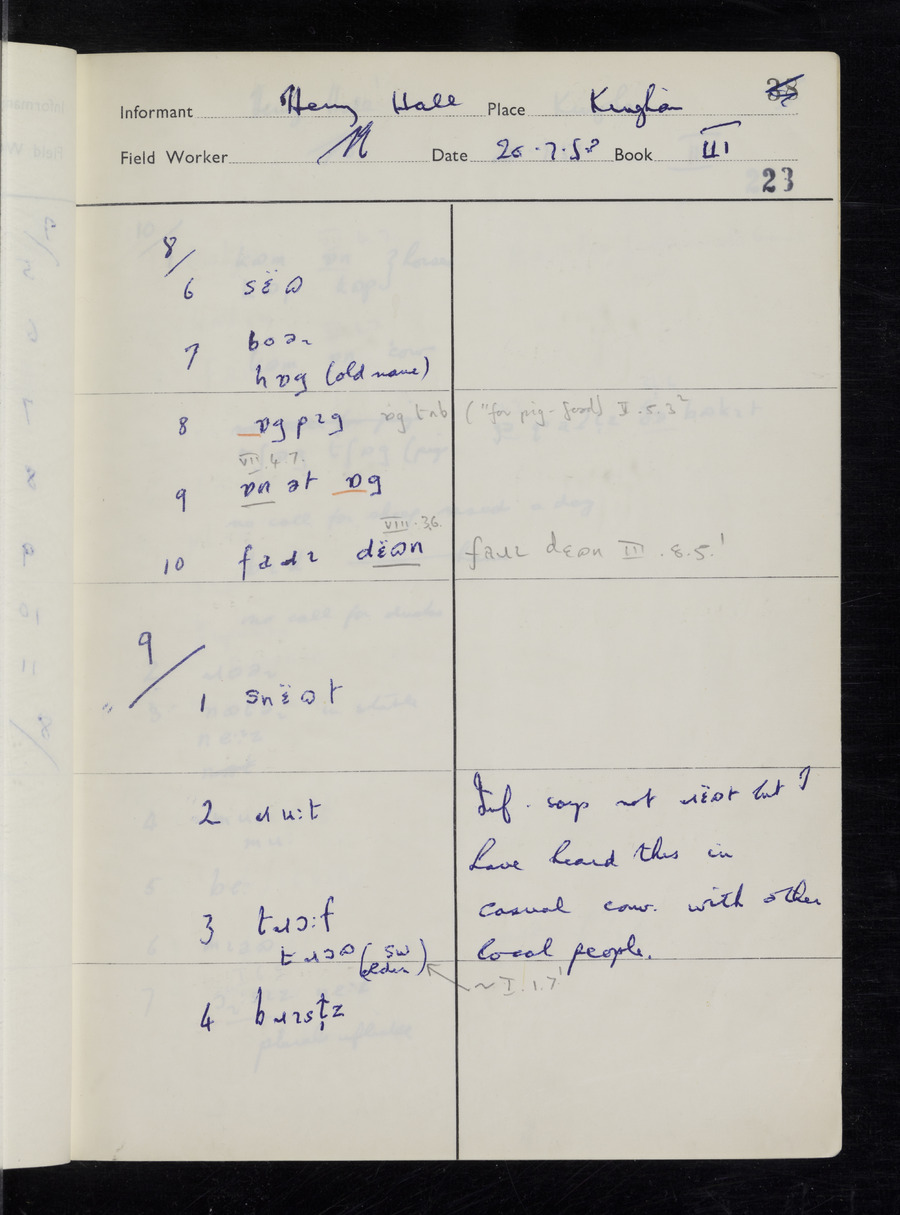 Informant Henry Hall Place Kingham
Field Worker Date Book III
23
8/
6 sɛ̈ɷ
7
hɒg (old name)
8 ɒgpɛg ɒg tʌb ("for pig-food) V.5.3
VII.4.7.
9 ɒn ət ɒg
VIII.3.6.
10 dɛ̈ɷn III.8.5.
9/
1 snɛ̈ɷt
2 ɹu:t
Inf. says not ɹɛ̈ɷt but I
have heard this in
casual conv. with other
local people.
3 tɹɔ:f
tɹɔɷ (SW elder)
~ I.1.7
4